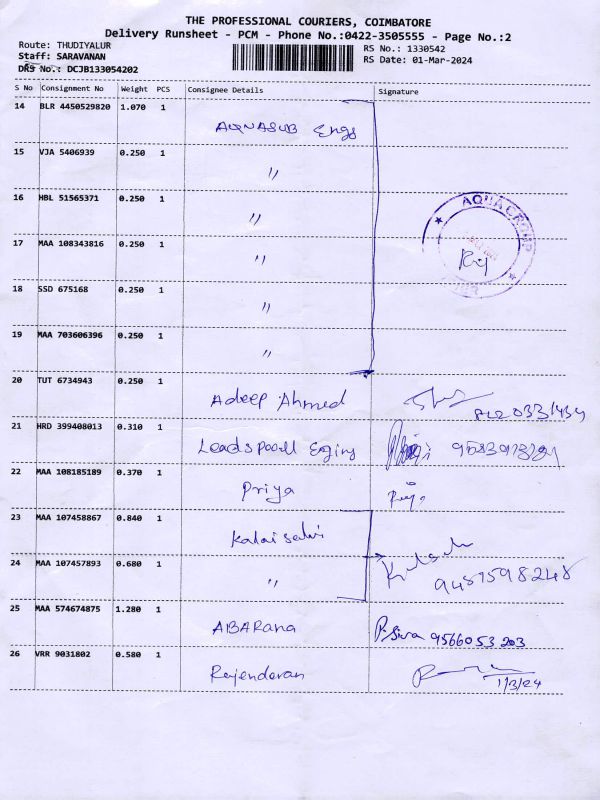 THE PROFESSIONAL COURIERS, COIMBATORE
Delivery Runsheet - PCM - Phone No.:0422-3505555 - Page No.:2
Route: THUDIYALUR RS No.: 1330542
Staff: SARAVANAN RS Date: 01-Mar-2024
DRS No.: DCJB133054202
S No Consignment No Weight PCS Consignee Details Signature
14 BLR 4450529820 1.070 1
AQUASUB Engg
15 VJA 5406939 0.250 1
"
16 HBL 51565371 0.250 1
"
AQUA GROUP
17 MAA 108343816 0.250 1
"
18 SSD 675168 0.250 1
"
19 MAA 703606396 0.250 1
"
20 TUT 6734943 0.250 1
Adeep Ahmed
21 HRD 399408013 0.310 1
22 MAA 108185189 0.370 1
Priya
23 MAA 107458867 0.840 1
Kalaiselvi
24 MAA 107457893 0.680 1
" 9487598248
25 MAA 574674875 1.280 1
ABARana P. Siva 9566053203
26 VRR 9031802 0.580 1
Rajendaran
1/3/24